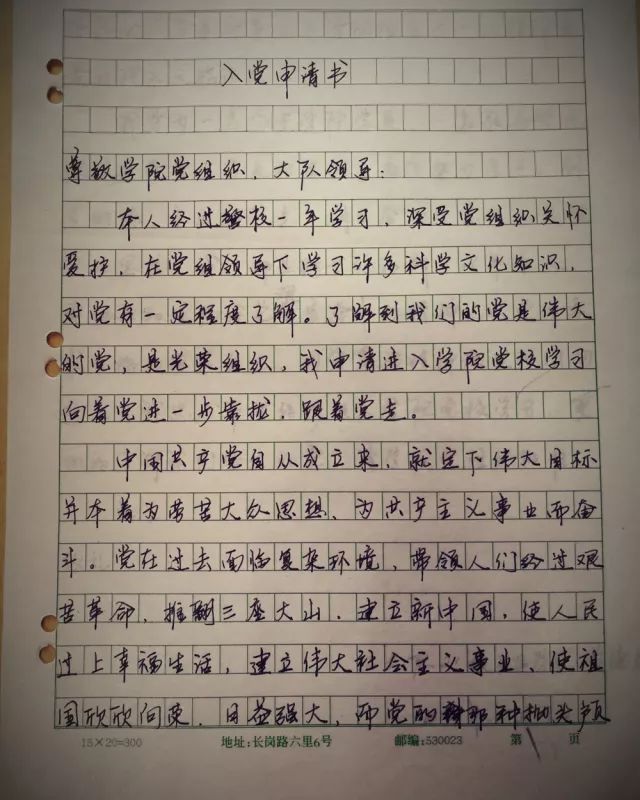 入党申请书
尊敬学院党组织、大队领导：
本人经过警校一年学习，深受党组织关怀
爱护，在党组领导下学习许多科学文化知识，
对党有一定程度了解。了解到我们的党是伟大
的党，是光荣组织，我申请进入学院党校学习
向着党进一步靠拢，跟着党走。
中国共产党自从成立来，就定下伟大目标
并本着为劳苦大众思想、为共产主义事业而奋
斗。党在过去面临复杂环境，带领人们经过艰
苦革命，推翻三座大山，建立新中国，使人民
过上幸福生活，建立伟大社会主义事业、使祖
国欣欣向荣，日益强大，而党的那种抛头颅
15×20=300 地址：长岗路六里6号 邮编：530023 第1页